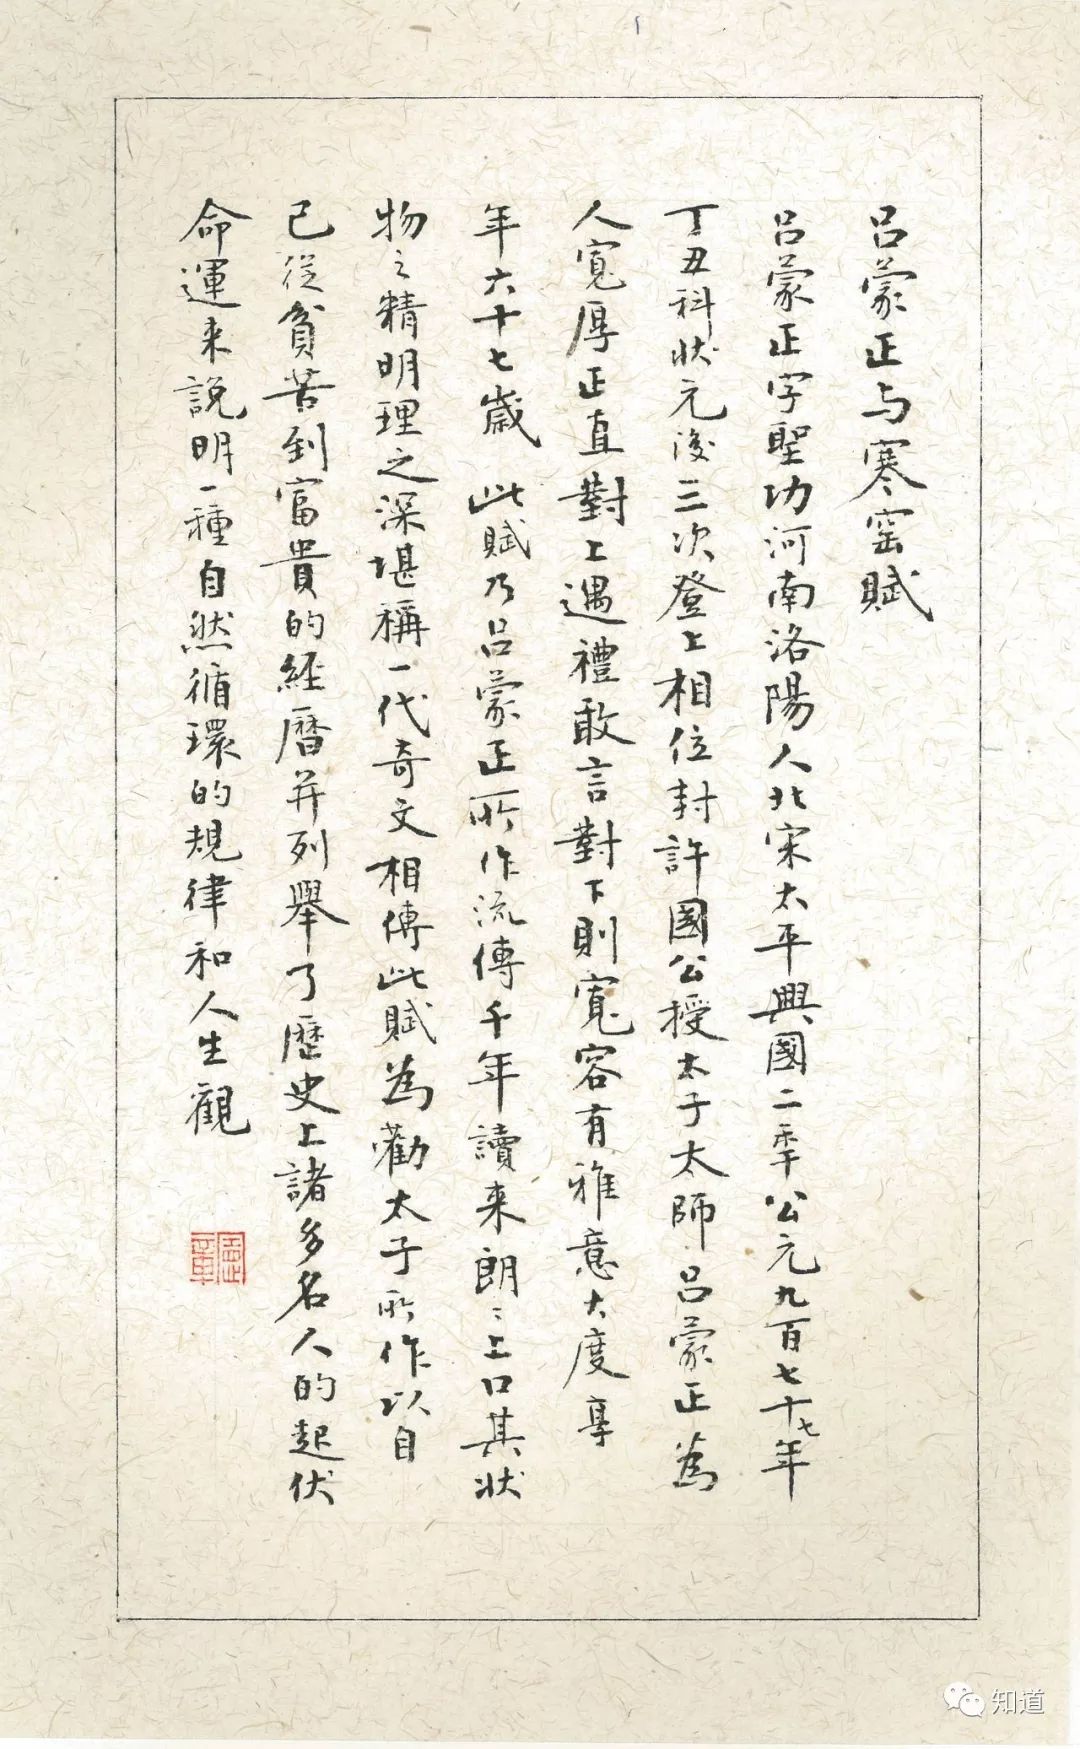 吕蒙正与寒窑赋
吕蒙正字聖功河南洛陽人北宋太平興國二季公元九百七十七年
丁丑科狀元後三次登上相位封許國公授太子太師 吕蒙正為
人寬厚正直對上遇禮敢言對下則寬容有雅意大度享
年六十七歲 此賦乃吕蒙正所作流傳千年讀来朗〻上口其狀
物之精明理之深堪稱一代奇文相傳此賦為勸太子所作以自
己從貧苦到富貴的經曆并列舉了歷史上諸多名人的起伏
命運来説明一種自然循環的規律和人生觀
知道